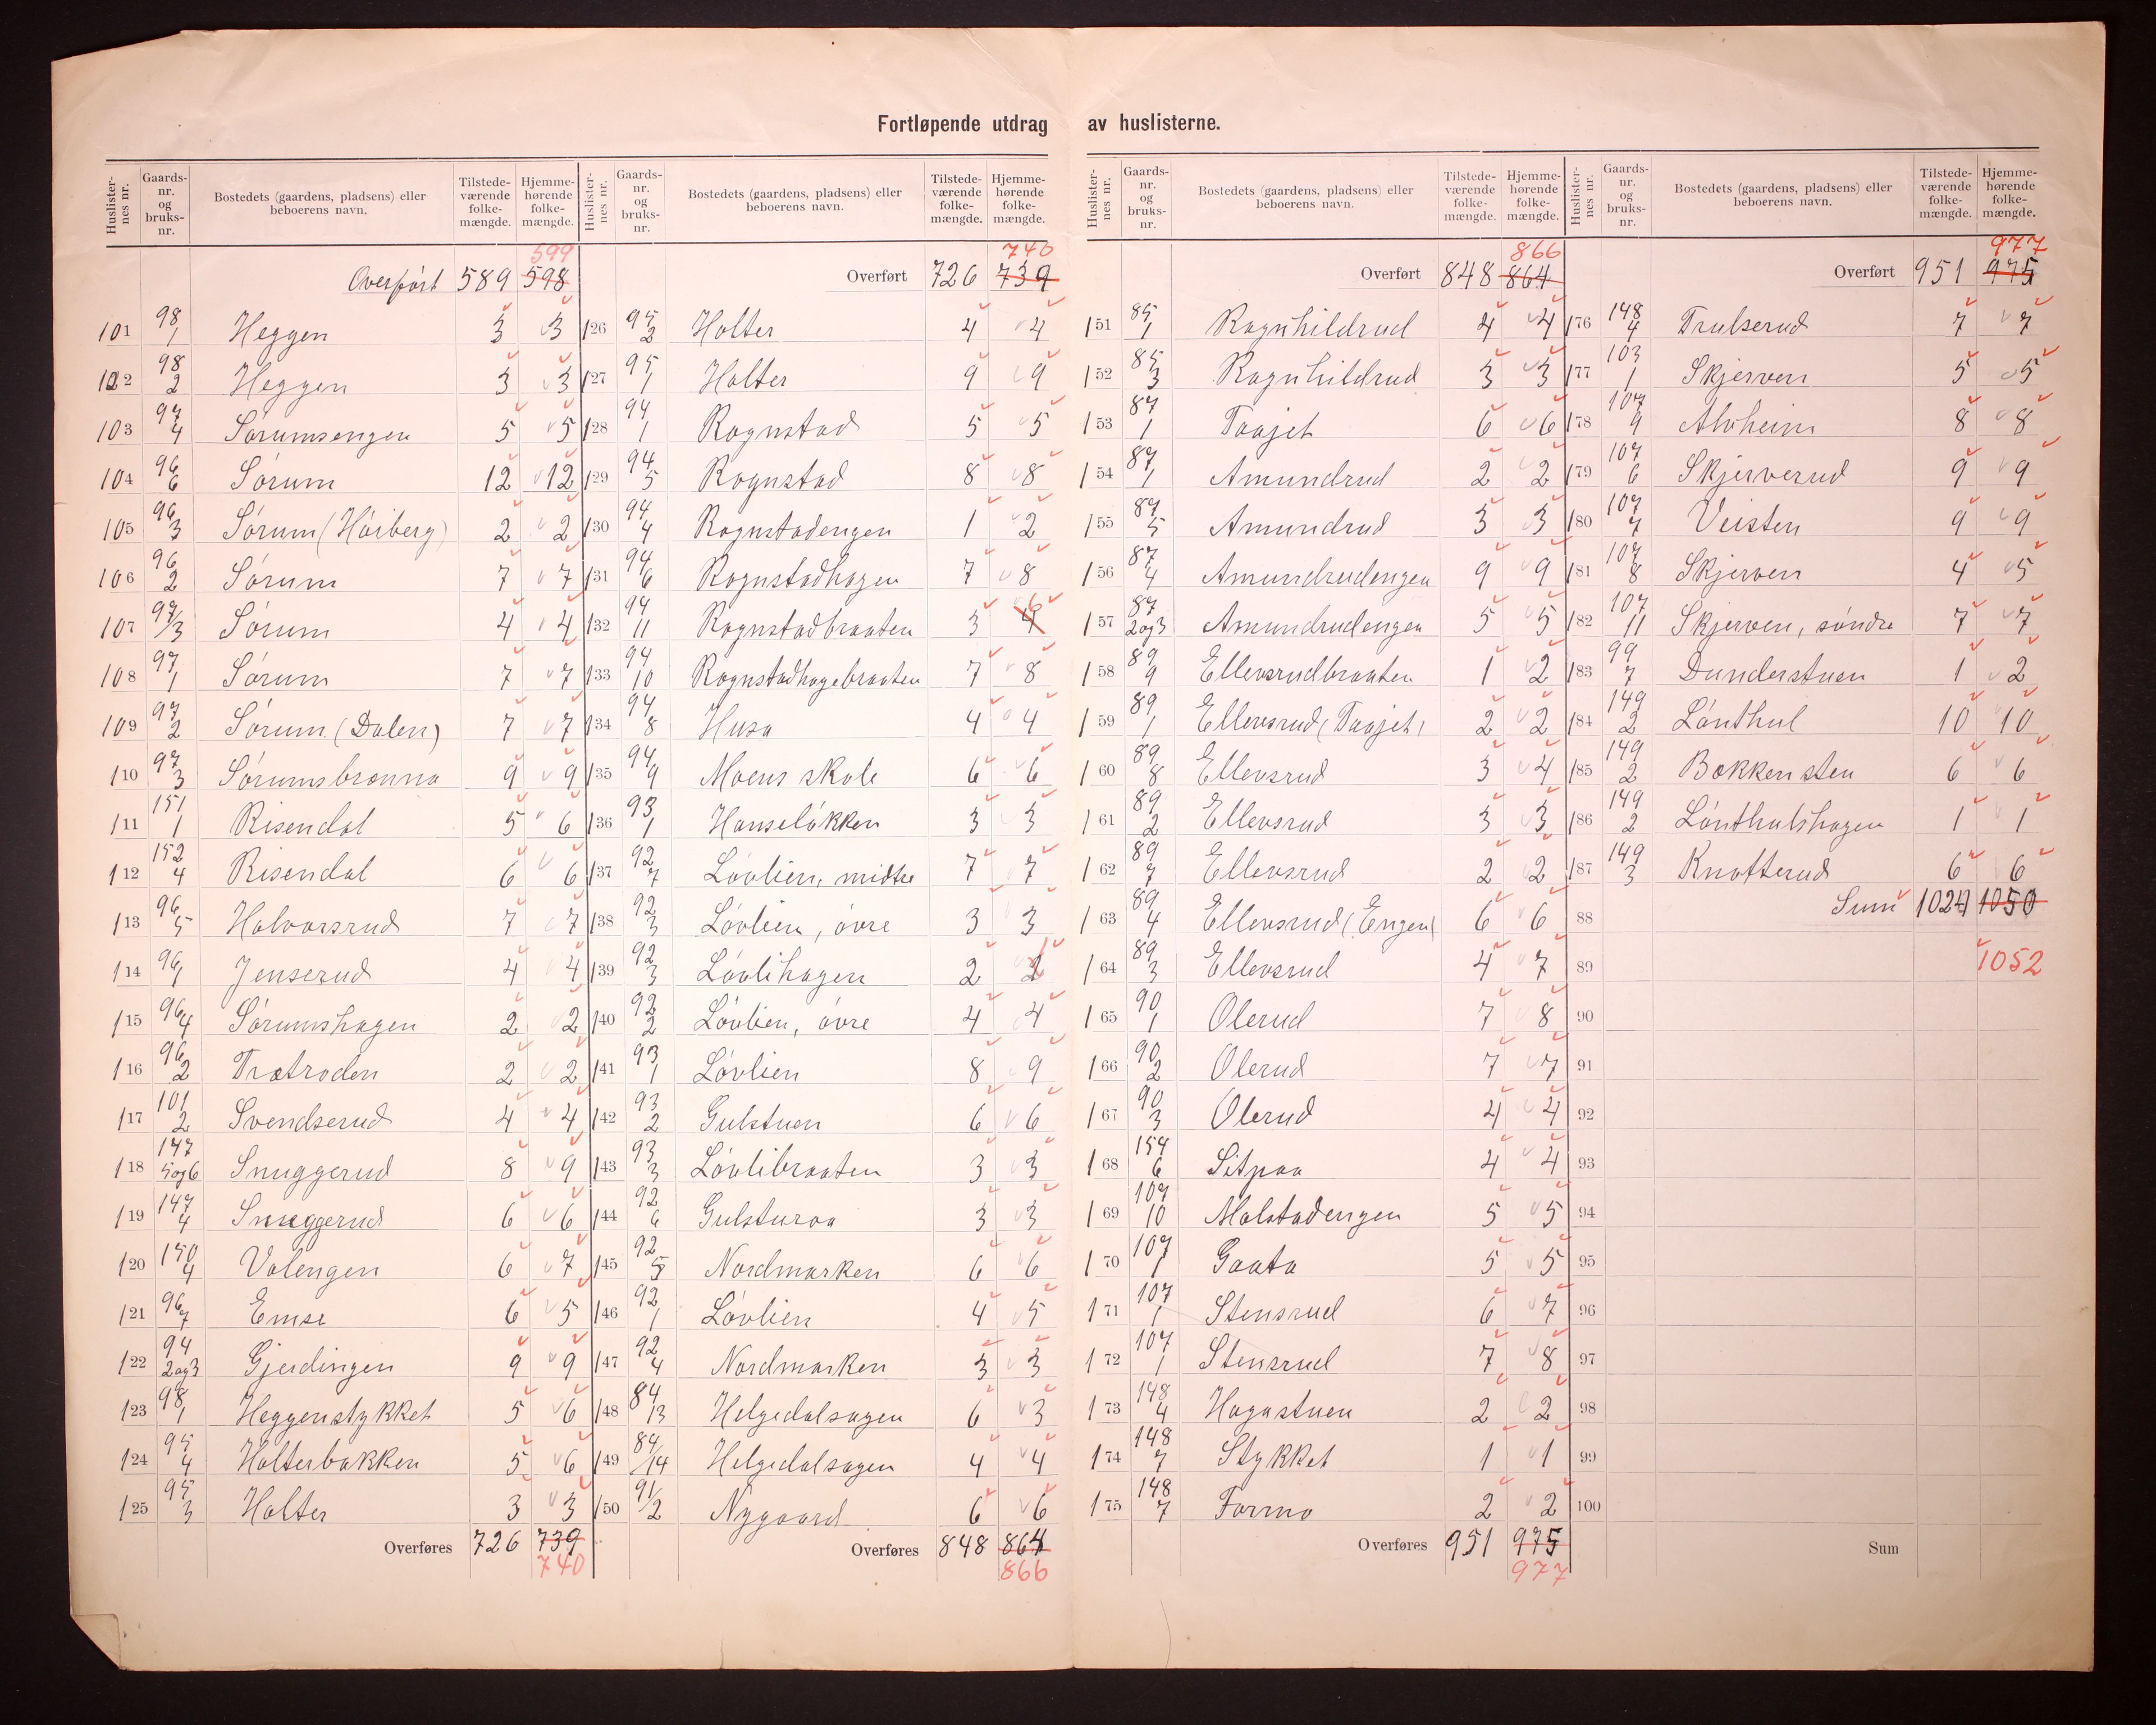 Fortløpende utdrag av huslisterne.
Huslisternes nr. Gaardsnr. og bruksnr. Bostedets (gaardens, pladsens) eller beboerens navn. Tilstedeværende folkemængde. Hjemmehørende folkemængde.
599
Overført 589 598
101 98/1 Heggen 3 3
102 98/2 Heggen 3 3
103 97/4 Sørumsengen 5 5
104 96/6 Sørum 12 12
105 96/3 Sørum (Høiberg) 2 2
106 96/2 Sørum 7 7
107 97/3 Sørum 4 4
108 97/1 Sørum 7 7
109 97/2 Sørum (Dalen) 7 7
110 97/3 Sørumsbrønna 9 9
111 151/1 Risendal 5 6
112 152/4 Risendal 6 6
113 96/5 Halvorsrud 7 7
114 96/1 Jenserud 4 4
115 96/4 Sørumshagen 2 2
116 96/2 Trætroden 2 2
117 101/2 Svendserud 4 4
118 147/5 og 6 Snuggerud 8 9
119 147/4 Snuggerud 6 6
120 150/4 Volengen 6 7
121 96/7 Emse 6 5
122 94/2 og 3 Gjerdingen 9 9
123 98/1 Heggenstykket 5 6
124 95/4 Holterbakken 5 6
125 95/3 Holter 3 3
Overføres 726 739
740
Huslisternes nr. Gaardsnr. og bruksnr. Bostedets (gaardens, pladsens) eller beboerens navn. Tilstedeværende folkemængde. Hjemmehørende folkemængde.
740
Overført 726 739
126 95/2 Holter 4 4
127 95/1 Holter 9 9
128 94/1 Rognstad 5 5
129 94/5 Rognstad 8 8
130 94/4 Rognstadengen 1 2
131 94/6 Rognstadhagen 7 8
132 94/11 Rognstadbraaten 3 4 6
133 94/10 Rognstadhagebraaten 7 8
134 94/8 Husa 4 4
135 94/9 Moens skole 6 6
136 93/1 Hanseløkken 3 3
137 92/7 Løvlien, midtre 7 7
138 92/3 Løvlien, øvre 3 3
139 92/3 Løvlihagen 2 2 1
140 92/2 Løvlien, øvre 4 4
141 93/1 Løvlien 8 9
142 93/2 Gulstuen 6 6
143 93/3 Løvlibraaten 3 3
144 92/6 Gulsturoa 3 3
145 92/5 Nordmarken 6 6
146 92/1 Løvlien 4 5
147 92/4 Nordmarken 3 3
148 84/13 Helgedalsagen 6 3
149 84/14 Helgedalsagen 4 4
150 91/2 Nygaard 6 6
Overføres 848 864
866
Huslisternes nr. Gaardsnr. og bruksnr. Bostedets (gaardens, pladsens) eller beboerens navn. Tilstedeværende folkemængde. Hjemmehørende folkemængde.
866
Overført 848 864
151 85/1 Ragnhildrud 4 4
152 85/3 Ragnhildrud 3 3
153 87/1 Taajet 6 6
154 87/1 Amundrud 2 2
155 87/5 Amundrud 3 3
156 87/4 Amundrudengen 9 9
157 87/2 og 3 Amundrudengen 5 5
158 89/9 Ellevsrudbraaten 1 2
159 89/1 Ellevsrud (Taajet) 2 2
160 89/8 Ellevsrud 3 4
161 89/2 Ellevsrud 3 3
162 89/7 Ellevsrud 2 2
163 89/4 Ellevsrud (Engen) 6 6
164 89/3 Ellevsrud 4 7
165 90/1 Olerud 7 8
166 90/2 Olerud 7 7
167 90/3 Olerud 4 4
168 154/6 Sitpaa 4 4
169 107/10 Molstadengen 5 5
170 107/1 Gaata 5 5
171 107/1 Stensrud 6 7
172 107/1 Stensrud 7 8
173 148/4 Hagastuen 2 2
174 148/7 Stykket 1 1
175 148/7 Formo 2 2
Overføres 951 975
977
Huslisternes nr. Gaardsnr. og bruksnr. Bostedets (gaardens, pladsens) eller beboerens navn. Tilstedeværende folkemængde. Hjemmehørende folkemængde.
977
Overført 951 975
176 148/4 Trulserud 7 7
177 103/1 Skjerven 5 5
178 107/9 Alvheim 8 8
179 107/6 Skjerverud 9 9
180 107/7 Veisten 9 9
181 107/8 Skjerven 4 5
182 107/11 Skjerven, søndre 7 7
183 99/7 Dunderstuen 1 2
184 149/2 Lønthul 10 10
185 149/2 Bækkensten 6 6
186 149/2 Lønthulshagen 1 1
187 149/3 Knatterud 6 6
88 Sum 1024 1050
89 1052
90
91
92
93
94
95
96
97
98
99
100
Sum